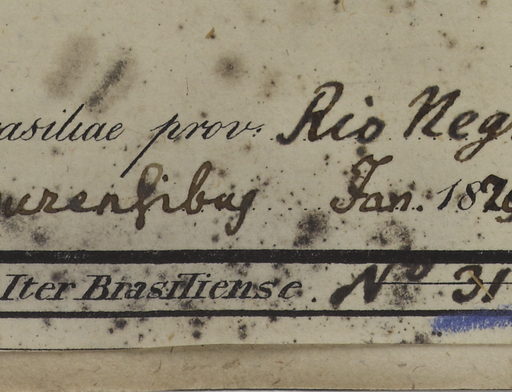 asiliae prov. Rio Neg
urensibus Jan. 182
Iter Brasiliense. No 31